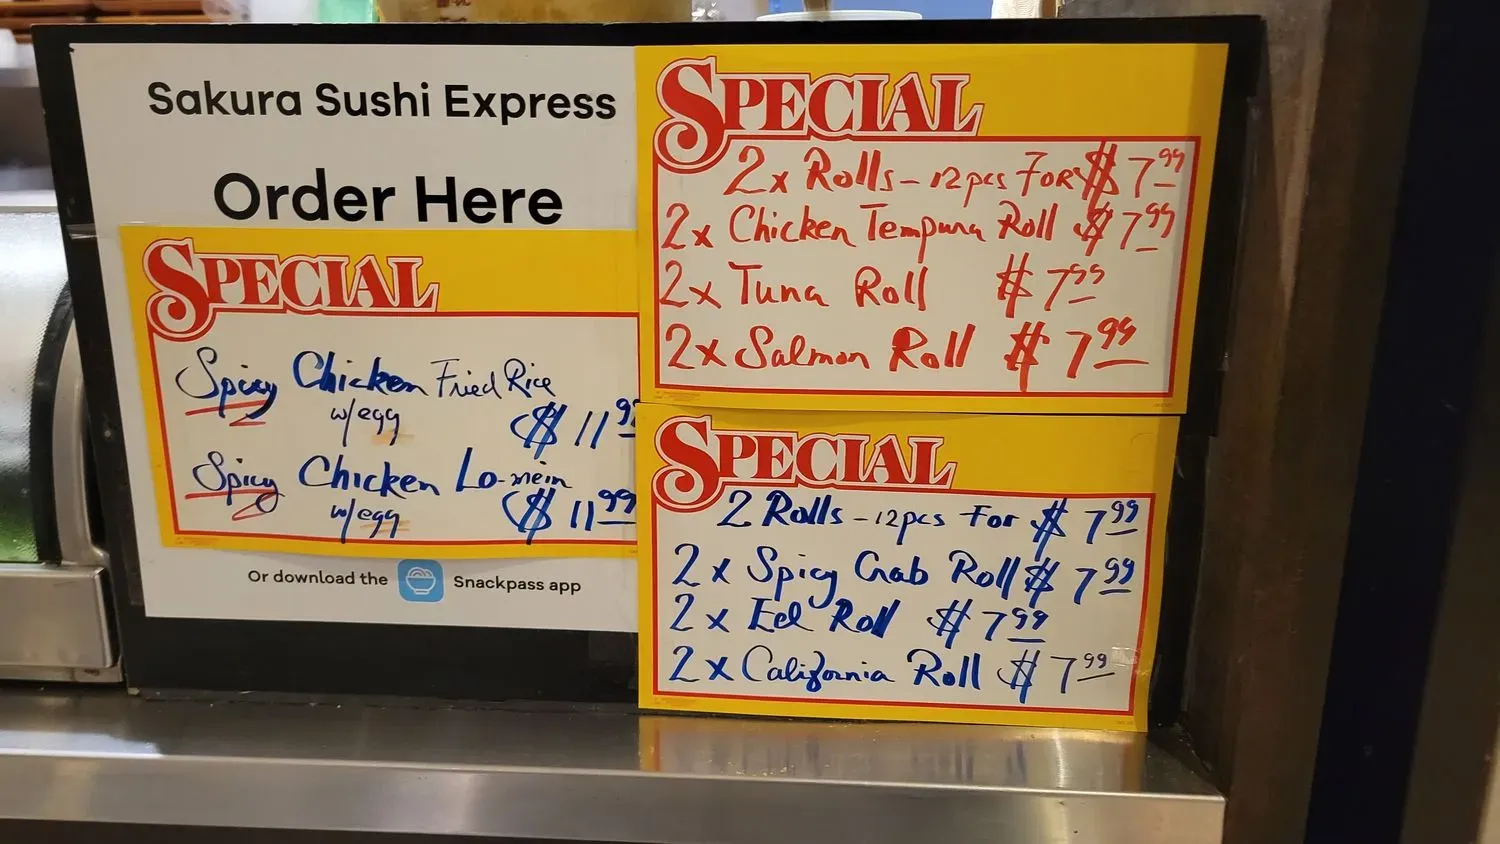 Sakura Sushi Express
Order Here
SPECIAL
Spicy Chicken Fried Rice
w/egg $11.99
Spicy Chicken Lo-mein
w/egg $11.99
Or download the Snackpass app
SPECIAL
2x Rolls - 12pcs For $7.99
2x Chicken Tempura Roll $7.99
2x Tuna Roll $7.99
2x Salmon Roll $7.99
SPECIAL
2 Rolls - 12pcs For $7.99
2x Spicy Crab Roll $7.99
2x Eel Roll $7.99
2x California Roll $7.99